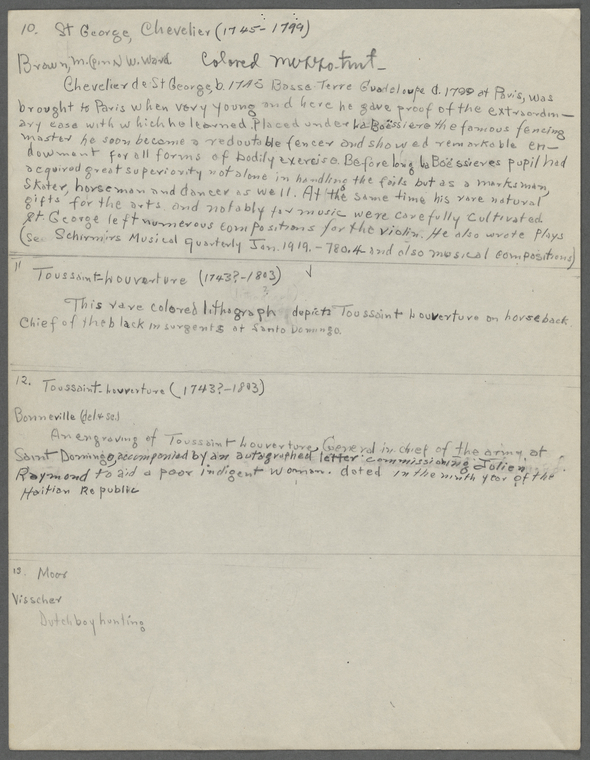 10. St George, Chevelier (1745-1799)
Brown, M. (pinx) W. Ward. Colored Mezzo-tint-
Chevelier de St George, b. 1745 Basse-Terre Guadeloupe d. 1799 at Paris, was
brought to Paris when very young and here he gave proof of the extraordin-
ary ease with which he learned. Placed under La Boëssiere the famous fencing
master he soon became a redoutable fencer and showed remarkable en-
dowment for all forms of bodily exercise. Before long La Boëssieres pupil had
acquired great superiority not alone in handling the foils but as a marksman,
skater, horseman and dancer as well. At the same time his rare natural
gifts for the arts and notably for music were carefully cultivated
St. George left numerous compositions for the violin. He also wrote plays
(See Schirmirs Musical quarterly Jan. 1919. - and also musical compositions)
11 Toussaint-Louverture (1743?-1803) √
This rare colored lithograph depicts Toussaint Louverture on horseback
Chief of the black insurgents at Santo Domingo.
12. Toussaint-Louverture (1743?-1803)
Bonneville (del & sc.)
An engraving of Toussaint Louverture, General in chief of the army at
Saint Domingo, accompanied by an autographed letter commissioning Julien
Raymond to aid a poor indigent woman. dated in the ninth year of the
Haitian Republic
13. Moor
Visscher
Dutch boy hunting